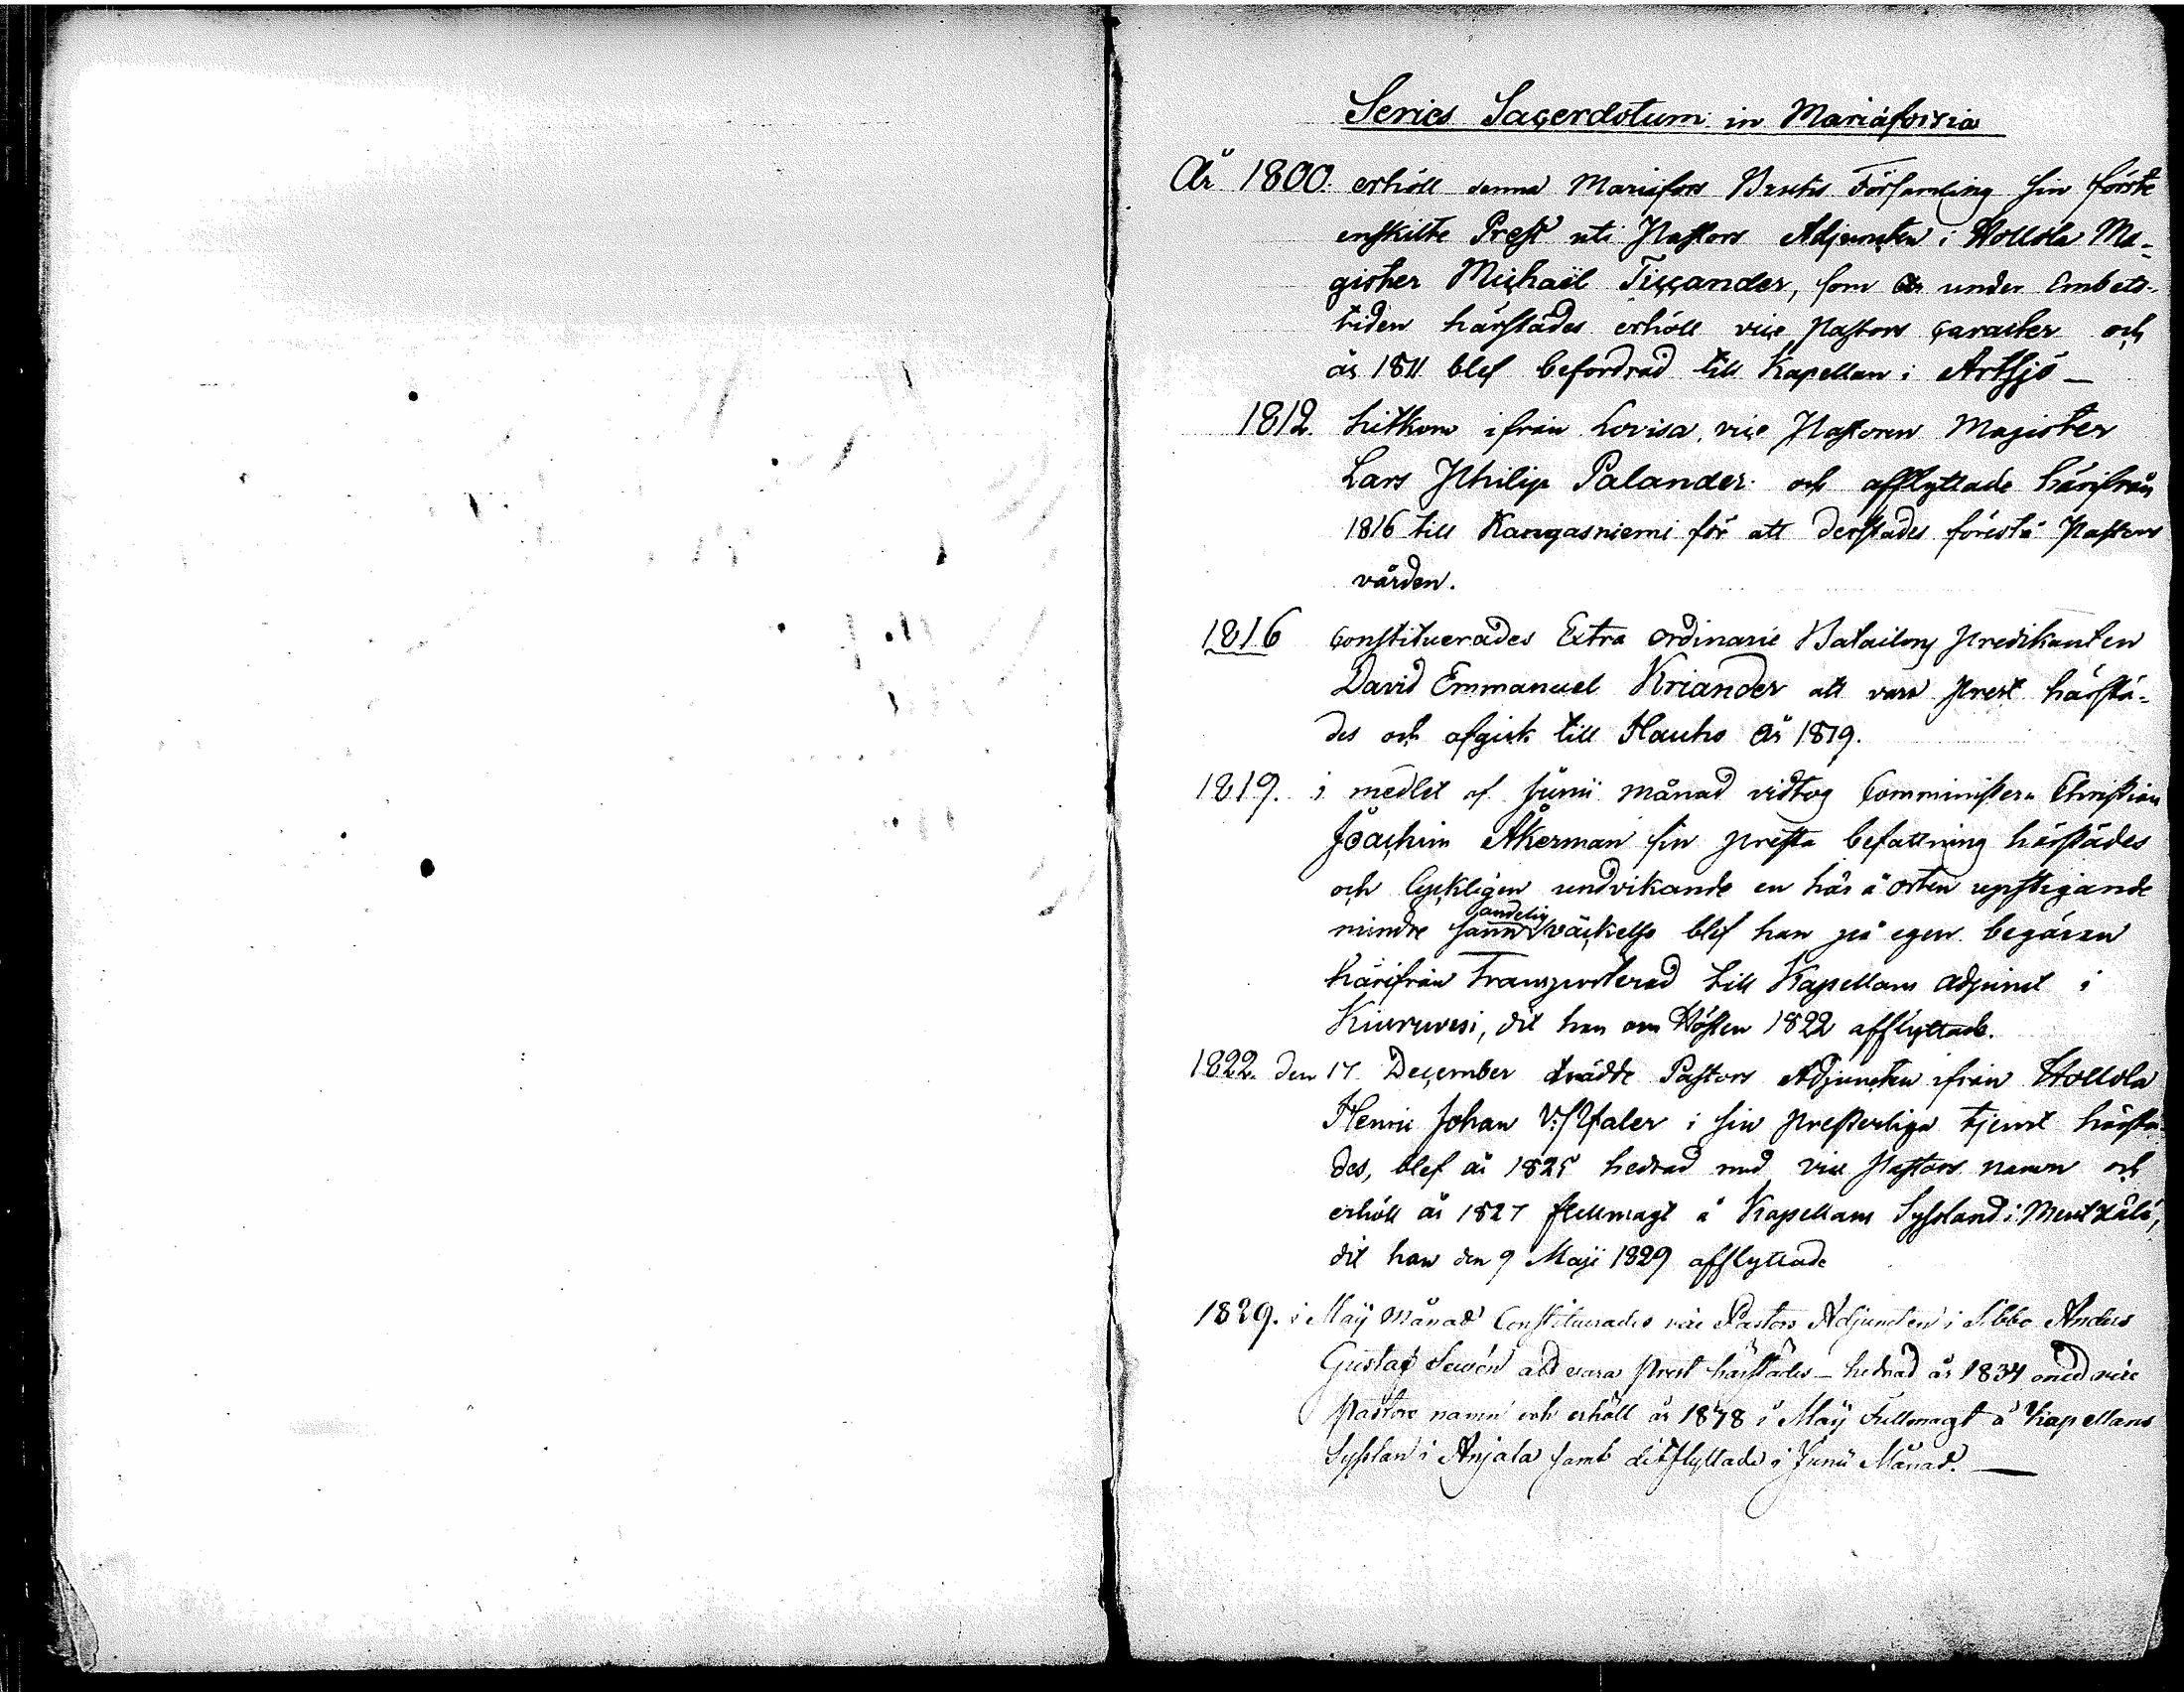 Series Sacerdotum in Mariæforsia
År 1800. erhöll denna Mariefors Bruks Församling sin förste
enskilte Prest uti Pastors Adjuncten i Hollola Ma-
gister Michaël Ticcander, som under Embets-
tiden härstädes erhöll vice Pastors caracter och
år 1811 blef befordrad till Kapellan i Artsjö —
1812. hitkom ifrån Lovisa, vice Pastoren Magister
Lars Philip Palander och afflyttade härifrån
1816 till Kangasniemi för att derstades förestå Pastors
vården.
1816 constituerades Extra ordinarie Batailons predikanten
David Emmanuel Kriander att vara prest härstä-
des och afgick till Hauho år 1819.
1819. i medlet af Junii månad vidtog Comministern Christian
Joachim Åkerman sin presta befattning härstädes
och lyckligen undvikande en här å orten upstigande
mindre sann andelig väckelse blef han på egen begäran
härifrån transporterad till Kapellans adjunct i
Kiuruvesi, dit han om Hösten 1822 afflyttade.
1822. den 17 December trädde Pastors Adjuncten ifrån Hollola
Henric Johan i sin presterliga tjenst härstä-
des, blef år 1825 hedrad med vice Pastors namn och
erhöll år 1827 fullmagt å Kapellans Sysland i
dit han den 9 Maji 1829 afflyttade
1829. i Maij månad Constituerades vice Pastors Adjuncten i Sibbo Anders
Gustaf att vara Prest härstädes – hedrad år 1834 med vice
Pastors namn och erhöll år 1848 i Maij Fullmagt å Kapellans
Sysslan i Anjala samt ditflyttade i Junii Månad. —